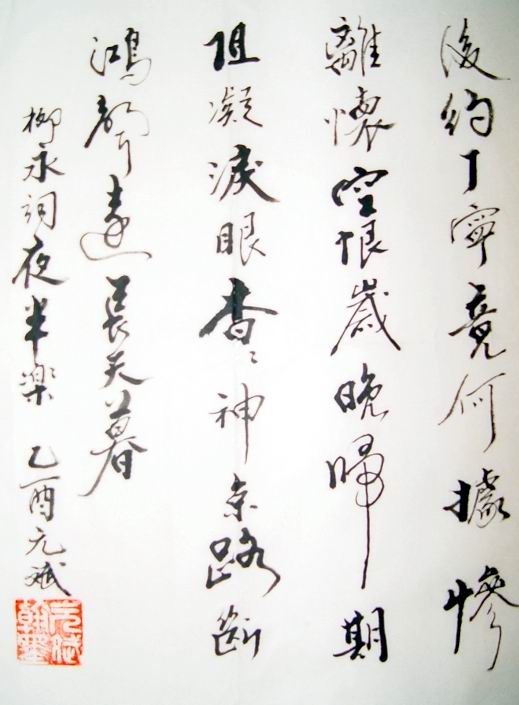 後約丁寧竟何據慘
離懷空恨歲晚歸期
阻凝淚眼杳々神京路斷
鴻聲遠長天暮
柳永詞夜半樂 乙酉元斌
元斌翰墨